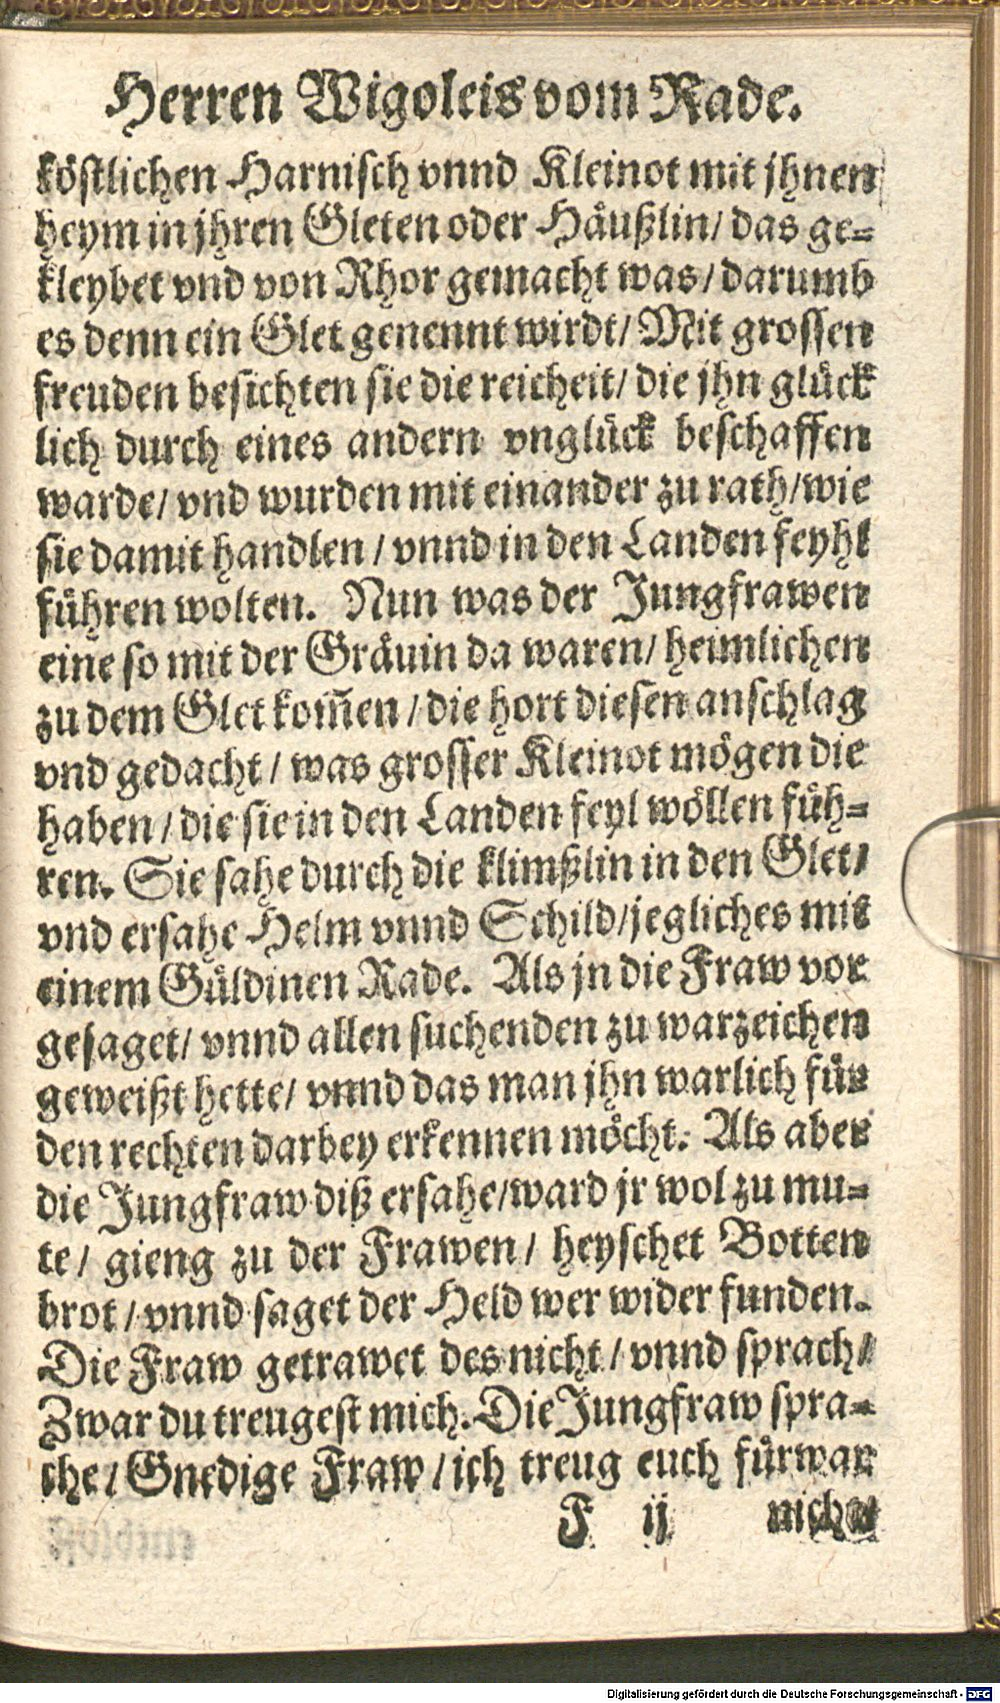 Herren Wigoleis vom Rade.
köstlichen Harnisch vnnd Kleinot mit jhnen
heym in jhren Gleten oder Häußlin/ das ge-
kleybet vnd von Rhor gemacht was/ darumb
es denn ein Glet genennt wirdt/ Mit grossen
freuden besichten sie die reicheit/ die jhn glück
lich durch eines andern vnglück beschaffen
warde/ vnd wurden mit einander zu rath/ wie
sie damit handlen/ vnnd in den Landen feyhl
führen wolten. Nun was der Jungfrawen
eine so mit der Gräuin da waren/ heimlichen
zu dem Glet kom̃en/ die hort diesen anschlag
vnd gedacht/ was grosser Kleinot mögen die
haben/ die sie in den Landen feyl wöllen füh-
ren. Sie sahe durch die klimßlin in den Glet/
vnd ersahe Helm vnnd Schild/ jegliches mit
einem Güldinen Rade. Als jn die Fraw vor
gesaget/ vnnd allen suchenden zu warzeichen
geweißt hette/ vnnd das man jhn warlich für
den rechten darbey erkennen möcht. Als aber
die Jungfraw diß ersahe/ ward jr wol zu mu-
te/ gieng zu der Frawen/ heyschet Botten
brot/ vnnd saget der Held wer wider funden.
Die Fraw getrawet des nicht/ vnnd sprach/
Zwar du treugest mich. Die Jungfraw spra-
che/ Gnedige Fraw/ ich treug euch fürwar
F ij nicht
Digitalisierung gefördert durch die Deutsche Forschungsgemeinschaft - DFG